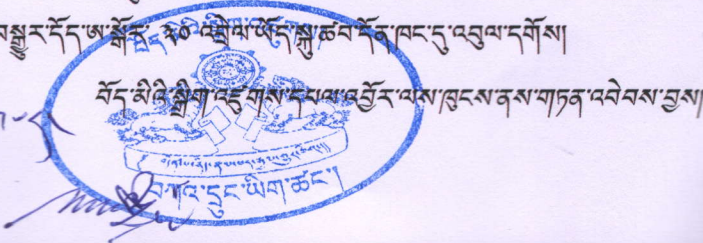 བསྒྱུར་དོད་ཨ་སྒོར་ ༢༠ འགྲེལ་ཡོད་སྐུ་ཚབ་དོན་ཁང་དུ་འབུལ་དགོས།
བོད་མིའི་སྒྲིག་འཛུགས་དཔལ་འབྱོར་ལས་ཁུངས་ནས་གཏན་འབེབས་བྱས།
བཀའ་དྲུང་ཡིག་ཚང་།